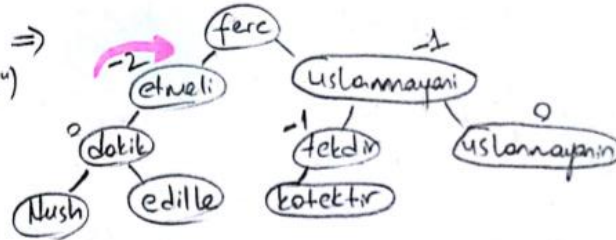 ⇒
ferc
-2
-1
u)
etmeli
uslanmayani
0
-1
0
dakik
tekdir
uslanmayanin
Nush
edille
kotektir